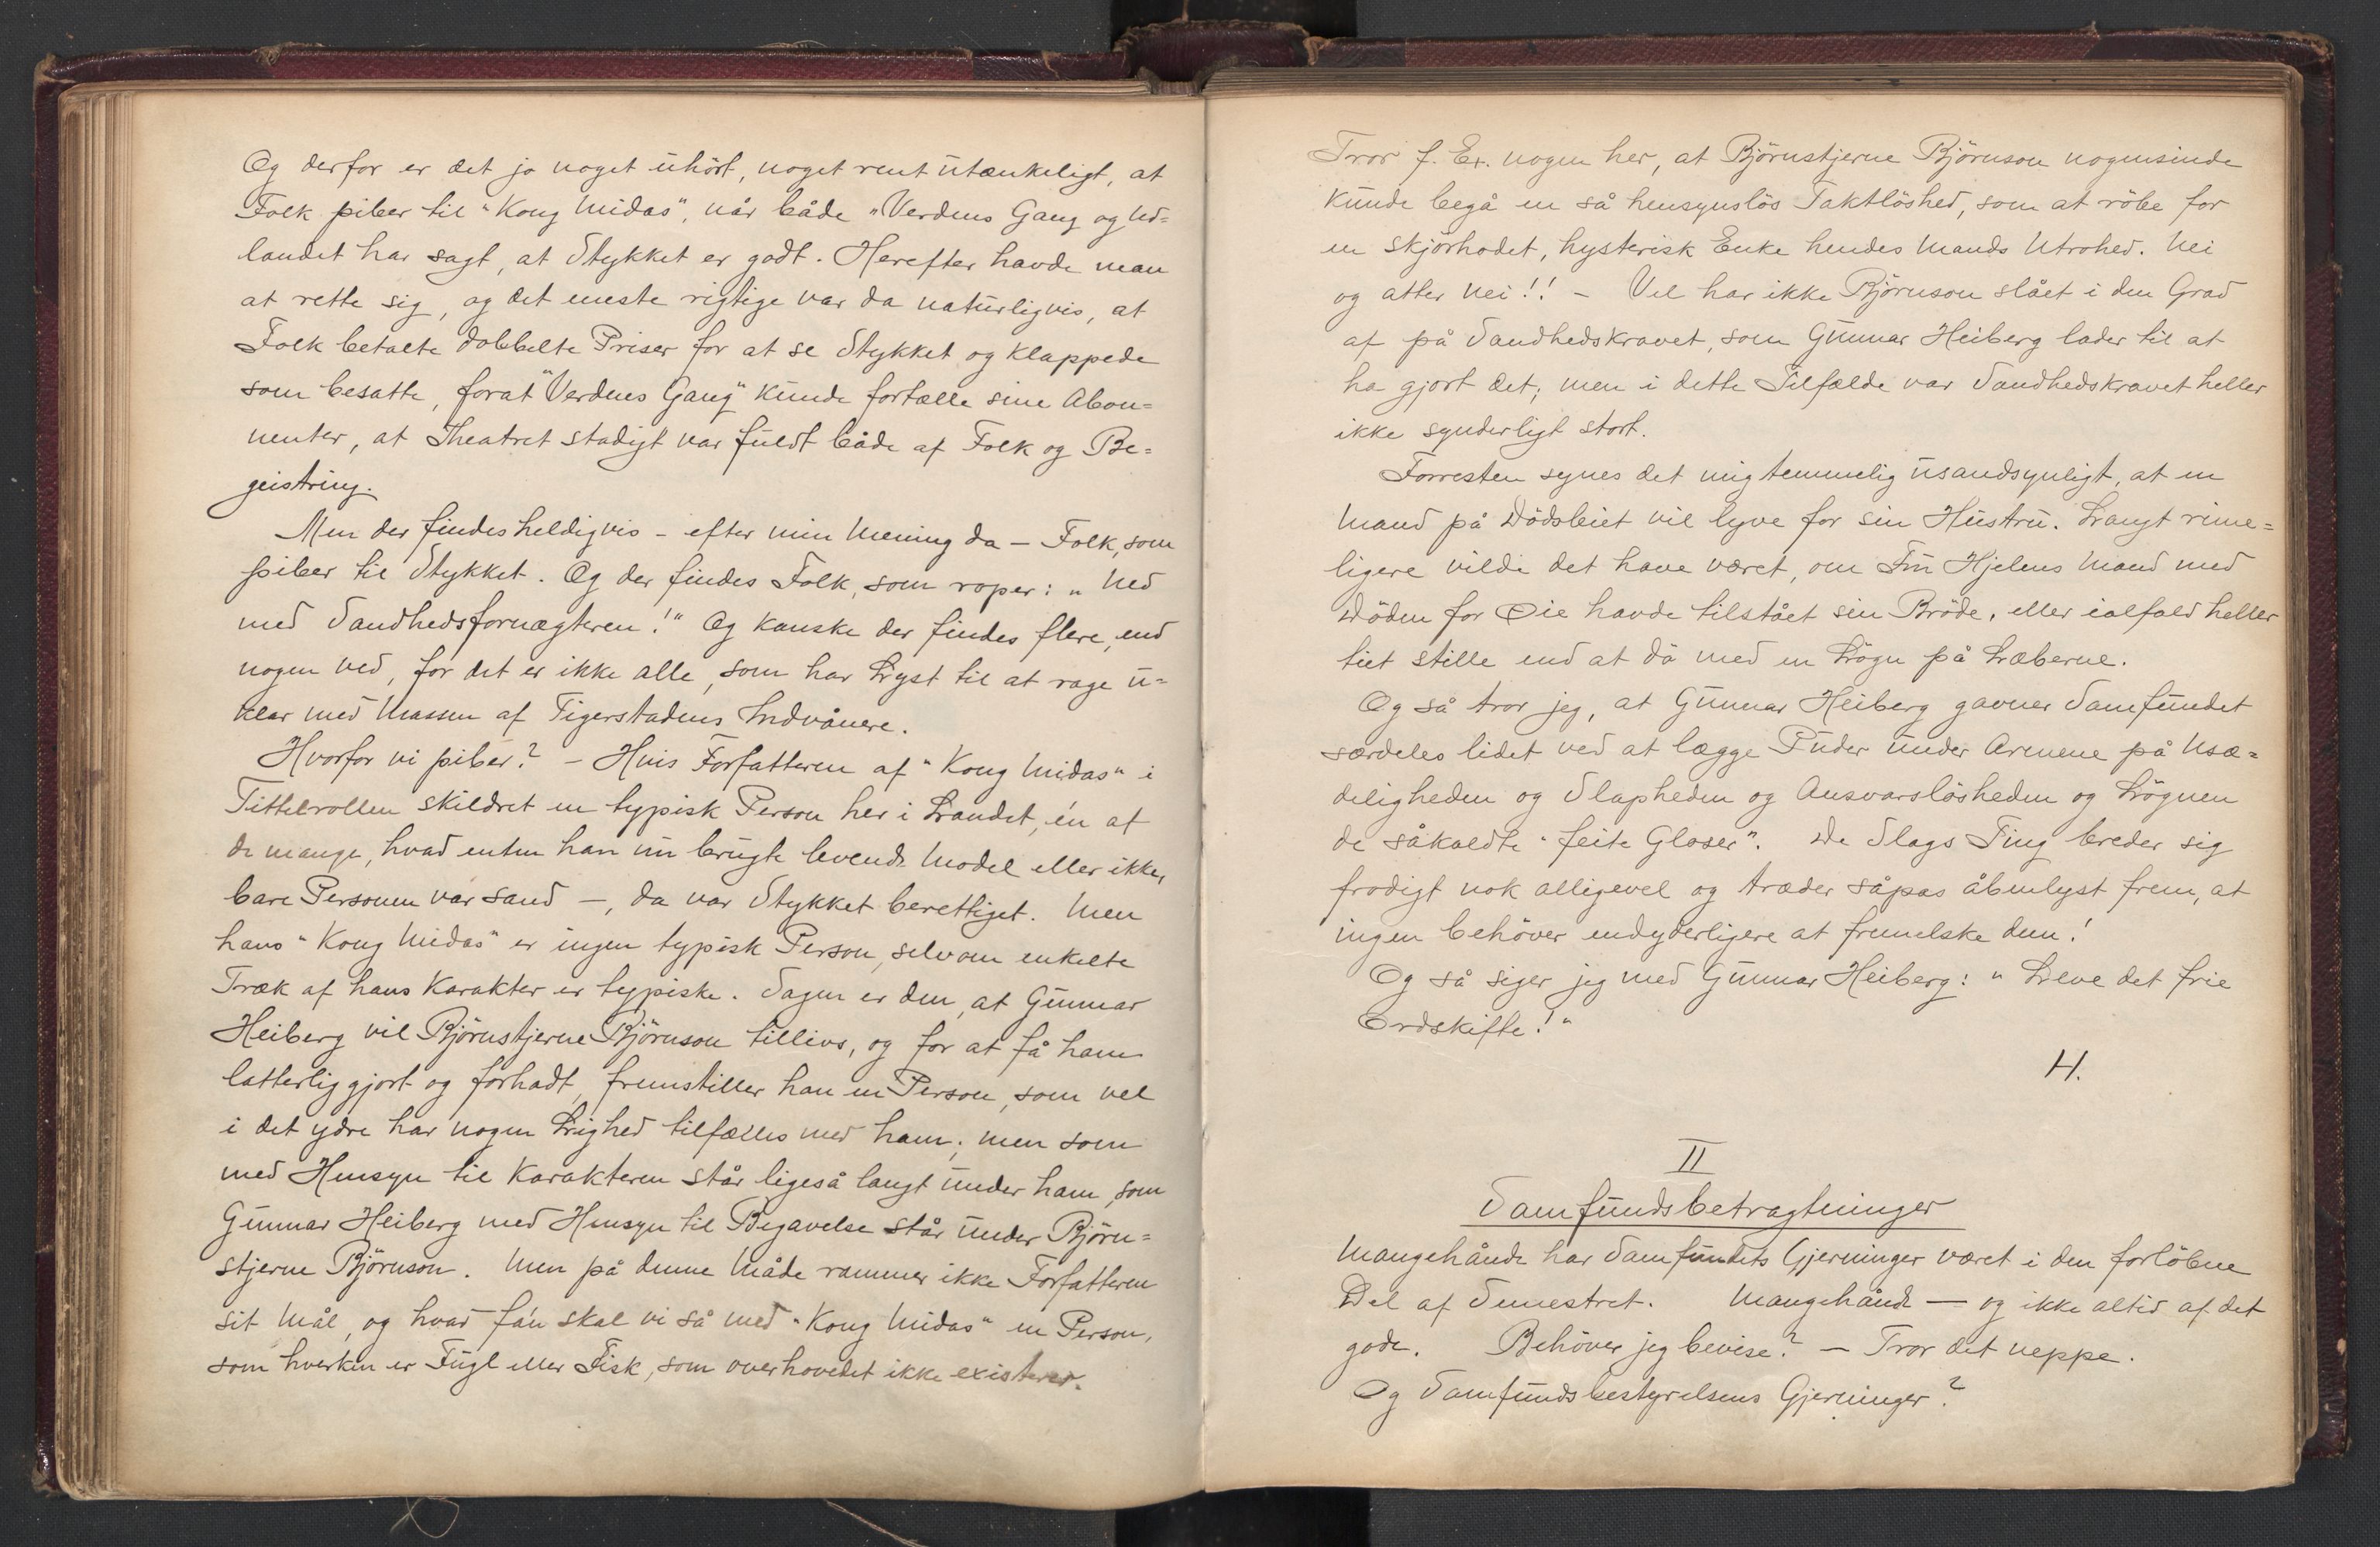 Og derfor er det jo noget uhört, noget rent utænkeligt, at
Folk piber til "Kong Midas", når både "Verdens Gang og Ud=
landet har sagt, at Stykket er godt. Herefter havde man
at rette sig, og det eneste rigtige var da naturligvis, at
Folk betalte dobbelte Priser for at se Stykket og klappede
som besatte, forat "Verdens Gang" kunde fortælle sine Abon=
nenter, at Theatret stadigt var fuldt både af Folk og Be=
geistring.
Men der findes heldigvis - efter min Mening da - Folk, som
piber til Stykket. Og der findes Folk, som roper: "Ned
med Sandhedsfornægteren!" Og kanske der findes flere, end
nogen ved, for det er ikke alle, som har Lyst til at rage u=
klar med Massen af Tigerstadens Indvånere.
Hvorfor vi piber? - Hvis Forfatteren af "Kong Midas" i
Tittelrollen skildret en typisk Person her i Landet, én af
de mange, hvad enten han nu brugte levende Model eller ikke,
bare Personen var sand -, da var Stykket berettiget. Men
hans "Kong Midas" er ingen typisk Person, selvom enkelte
Træk af hans Karakter er typiske. Sagen er den, at Gunnar
Heiberg vil Björnstjerne Björnson tillivs, og for at få ham
latterliggjort og forhadt, fremstiller han en Person, som vel
i det ydre har nogen Lighed tilfælles med ham; men som
med Hensyn til Karakteren står ligeså langt under ham, som
Gunnar Heiberg med Hensyn til Begavelse står under Björn=
stjerne Björnson. Men på denne Måde rammer ikke Forfatteren
sit Mål, og hvad fan skal vi så med "Kong Midas" en Person,
som hverken er Fugl eller Fisk, som overhovedet ikke existerer.
Tror f. Ex. nogen her, at Björnstjerne Björnson nogensinde
kunde begå en så hensynslös Taktlöshed, som at röbe for
en skjörhodet, hysterisk Enke hendes Mands Utrohed. Nei
og atter Nei!! - Vel har ikke Björnson slået i den Grad
af på Sandhedskravet, som Gunnar Heiberg lader til at
ha gjort det; men i dette Tilfælde var Sandhedskravet heller
ikke synderligt stort.
Forresten synes det mig temmelig usandsynligt, at en
Mand på Dödsleiet vil lyve for sin Hustru. Langt rime=
ligere vilde det have været, om Fru Hjelms Mand med
Döden for Øie havde tilstået sin Bröde, eller ialfald heller
tiet stille end at dö med en Lögn på Læberne.
Og så tror jeg, at Gunnar Heiberg gavner Samfundet
særdeles lidet ved at lægge Puder under Armene på Usæ=
deligheden og Slapheden og Ansvarslösheden og Lögnen
de såkaldte "feite Gloser". De Slags Ting breder sig
frodigt nok alligevel og træder såpas åbenlyst frem, at
ingen behöver endyderligere at fremelske dem!
Og så siger jeg med Gunnar Heiberg: "Leve det frie
Ordskifte!"
H.
II
Samfundsbetragtninger
Mangehånde har Samfundets Gjerninger været i den forlöbne
Del af Semestret. Mangehånde - og ikke altid af det
gode. Behöver jeg bevise? - Tror det neppe.
Og Samfundsbestyrelsens Gjerninger?